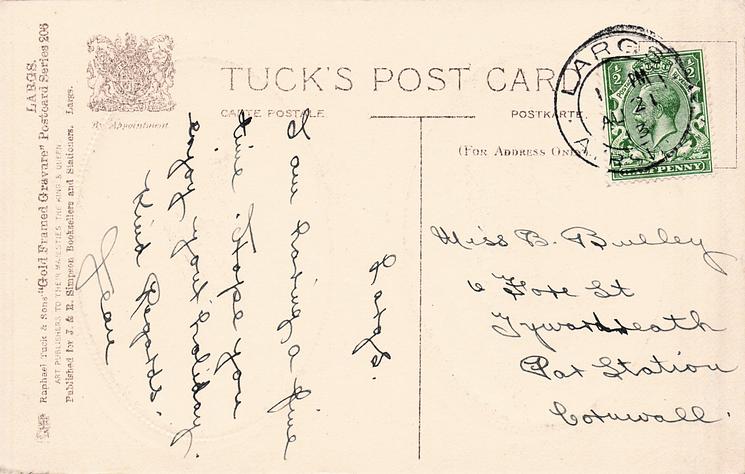 LARGS.
Raphael Tuck & Sons' "Gold Framed Gravure" Postcard Series 206
ART PUBLISHERS TO THEIR MAJESTIES THE KING & QUEEN
Published for J. & R. Simpson Booksellers and Stationers, Largs.
By Appointment
TUCK'S POST CAR
CARTE POSTALE
POSTKARTE
(FOR ADDRESS ONLY)
LARGS
PM
21
13
½
½
PENNY
Largs.
I am having a fine
time. Hope you
enjoy your holiday.
Kind Regards.
Jean
Miss B. Bulley
6 Fore St
Tywardreath
Par Station
Cornwall.